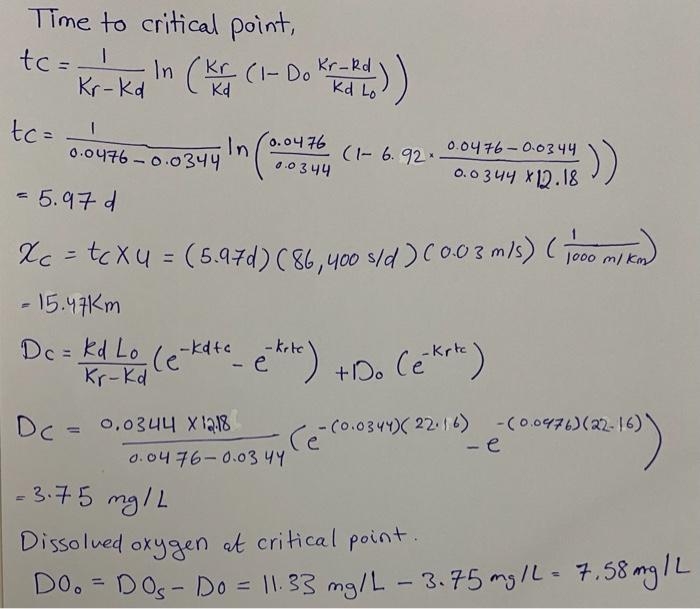 Time to critical point,
tc = 1/(Kr-Kd) ln (Kr/Kd (1-Do (Kr-Kd)/(Kd Lo)))
tc = 1/(0.0476-0.0344) ln (0.0476/0.0344 (1-6.92· (0.0476-0.0344)/(0.0344×12.18)))
= 5.97 d
xc = tc×u = (5.97d)(86,400 s/d)(0.03 m/s)(1/1000 m/km)
= 15.47Km
Dc = Kd Lo/(Kr-Kd) (e^-Kdtc - e^-Krtc) + Do (e^-Krtc)
Dc = 0.0344 × 12.18/(0.0476-0.0344) (e^-(0.0344)(22.16) - e^-(0.0476)(22.16))
= 3.75 mg/L
Dissolved oxygen at critical point.
DOo = DOs - Do = 11.33 mg/L - 3.75 mg/L = 7.58 mg/L